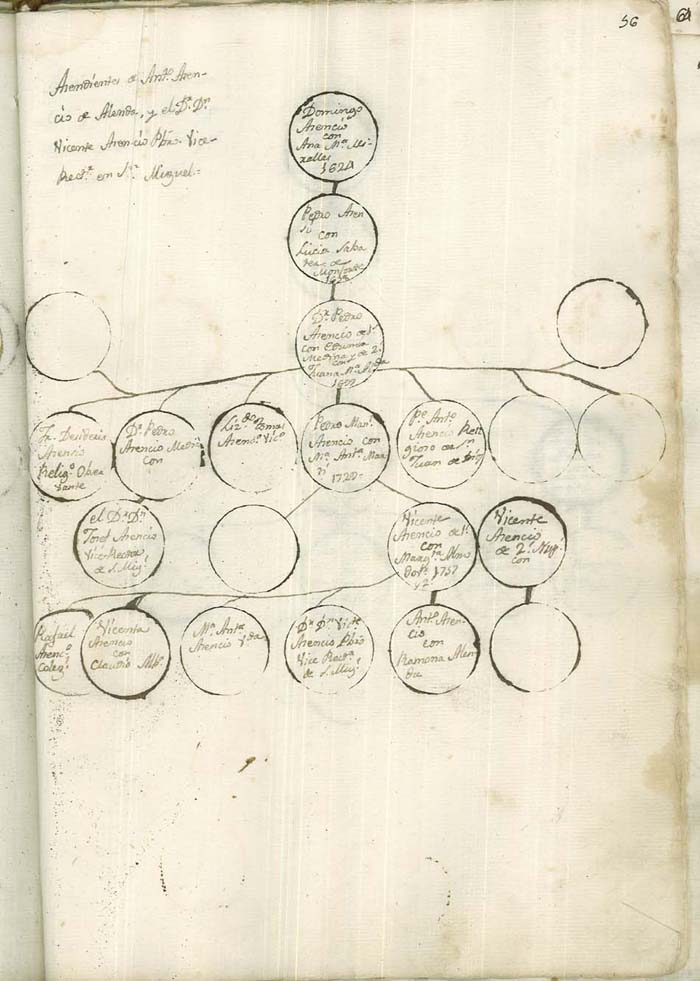 56
64
Asendientes de Antº. Aren-
cio de Alenda, y el Dʳ. Dⁿ.
Vicente Arencio Pbro. Vice-
Rectʳ. en Sⁿ. Miguel=
Domingo
Arencio
con
Ana Mª. Mi-
ralles
1624
Pedro Aren
sio
con
Lucia Saba
ter de
Monforte
Dʳ. Pedro
Arencio de 1ª.
con
Medina y de 2ª.
con
Juana Mª.
Fr.
Arencio
Religº. Obser
vante
Dⁿ. Pedro
Arencio Medina
con
Lizdº. Tomas
Arencº.
Pedro Manˡ.
Arencio con
Mª. Antª. Mar
1720=
Pᵉ. Antº.
Arencio Reli
gioso de Sⁿ
Juan de
el Dʳ. Dⁿ.
Josef Arencio
Vice Rector
de S. Migˡ.
Vicente
Arencio de 1ª.
con
Margᵗᵃ.
1757
y 2ª
Vicente
Arencio
de 2ª. Nup.
con
Rafael
Arencº.
Colegˡ.
Vicenta
Arencio
con
Claudio
Mª. Antª.
Arencio
Dʳ. Dⁿ. Vicᵗᵉ.
Arencio Pbro
Vice Rectʳ.
de S. Migˡ.
Antº. Aren-
cio
con
Ramona Alen-
da